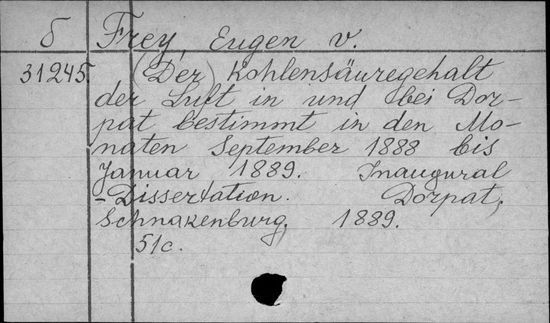 б Frey, Eugen v.
31245. (Der) Kohlensäuregehalt
der Luft in und bei Dor-
pat bestimmt in den Mo-
naten September 1888 bis
Januar 1889. Inaugural
-Dissertation. Dorpat,
Schnakenburg, 1889.
51c.